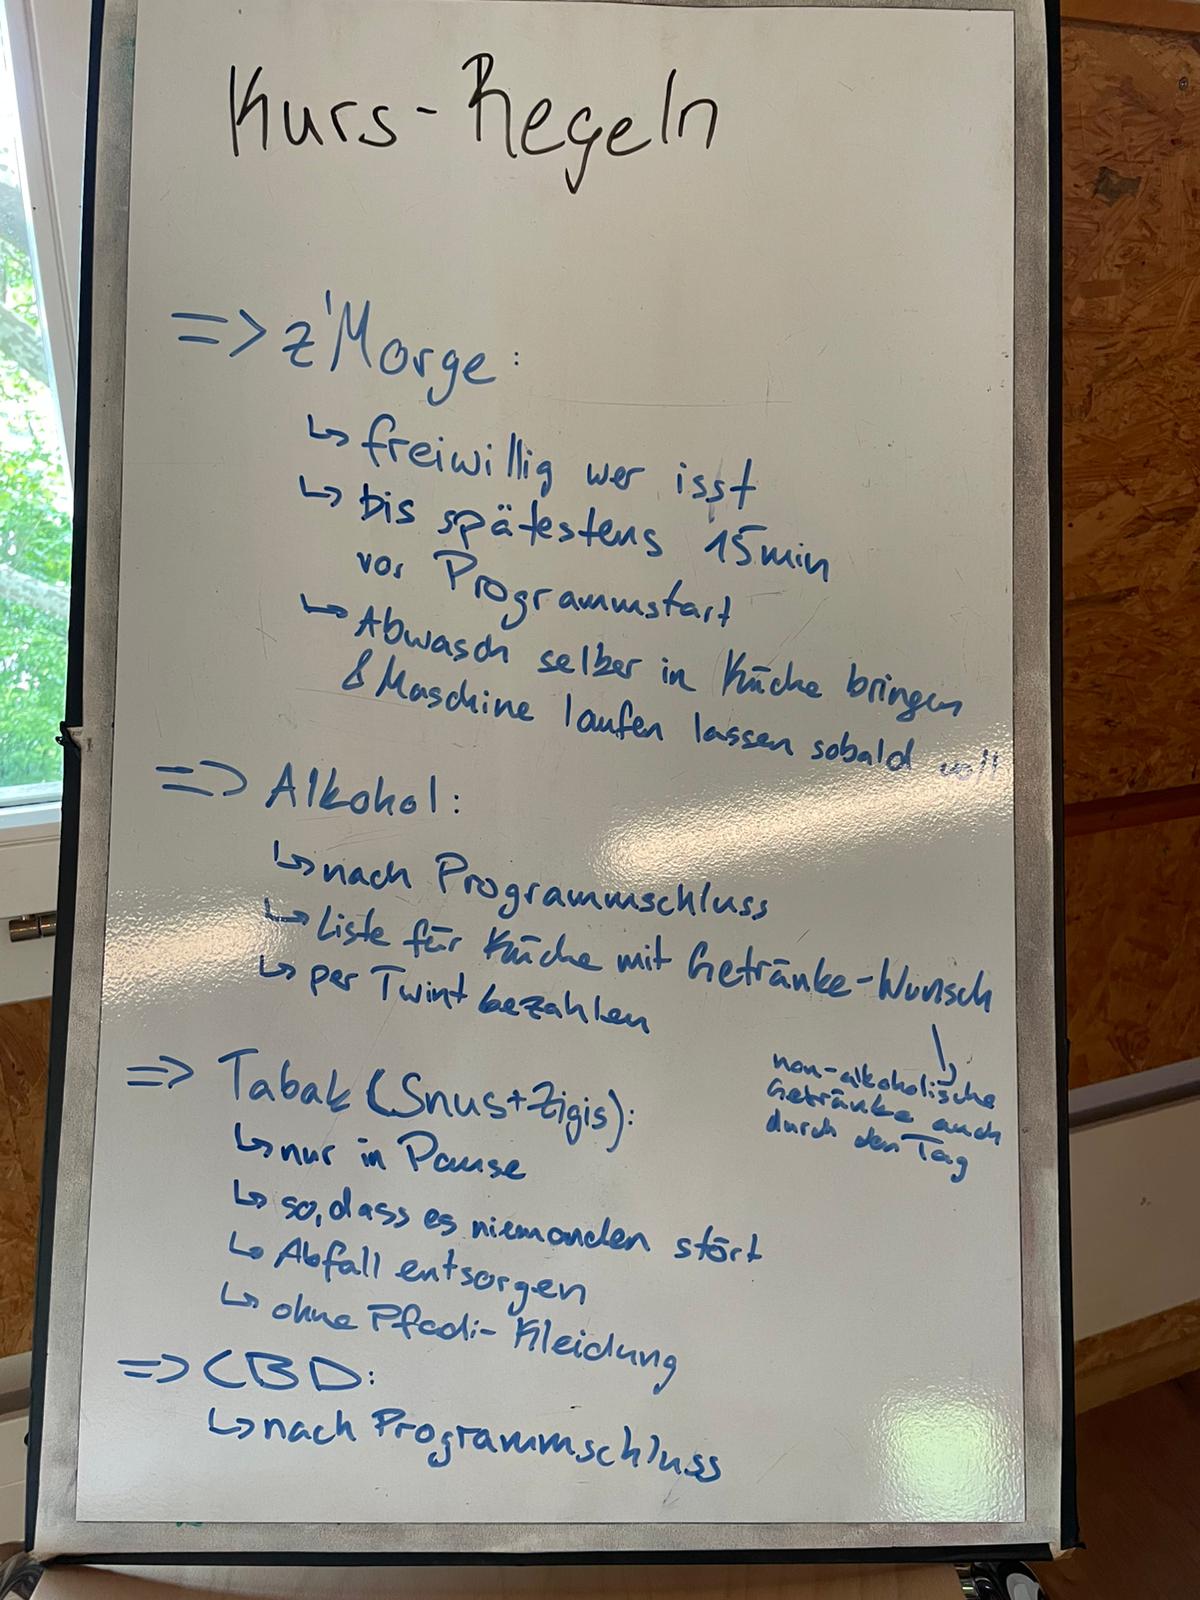 Kurs-Regeln
=> z'Morge:
↳ freiwillig wer isst
↳ bis spätestens 15min
vor Programmstart
↳ Abwasch selber in Küche bringen
& Maschine laufen lassen sobald voll
=> Alkohol:
↳ nach Programmschluss
↳ Liste für Küche mit Getränke-Wunsch
↳ per Twint bezahlen
non-alkoholische
Getränke auch
durch den Tag
=> Tabak (Snus+Zigis):
↳ nur in Pause
↳ so, dass es niemanden stört
↳ Abfall entsorgen
↳ ohne Pfadi-Kleidung
=> CBD:
↳ nach Programmschluss